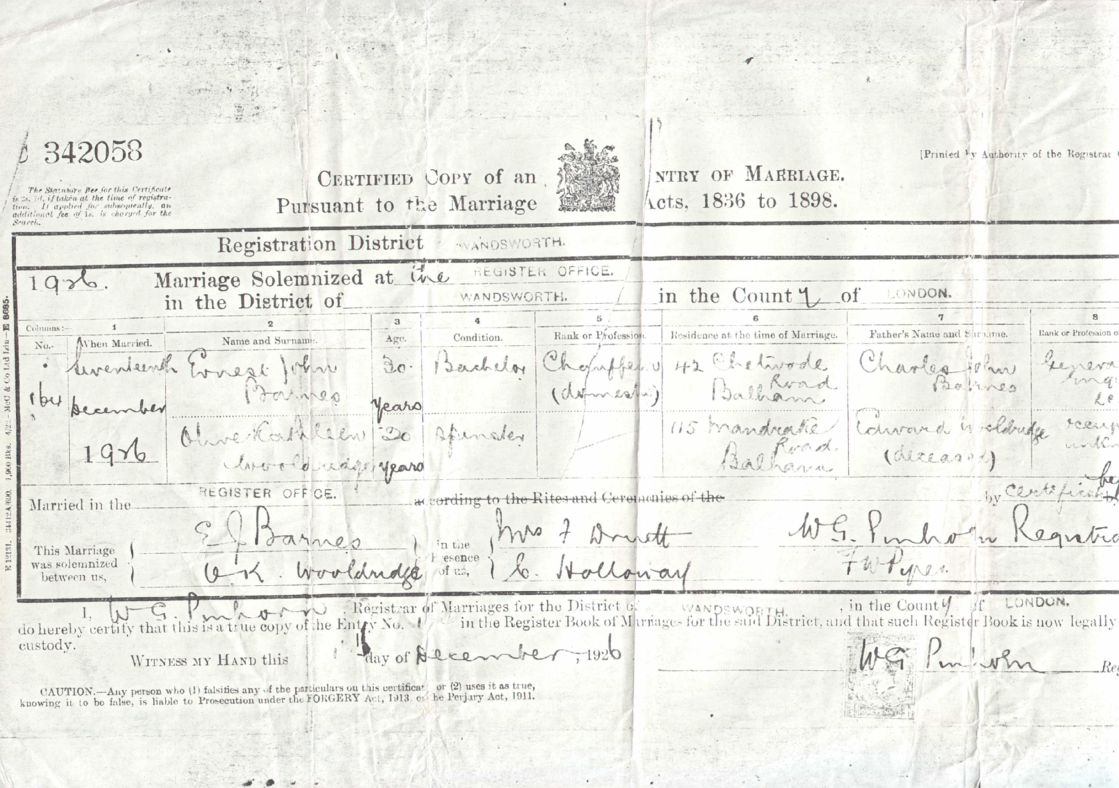 342058
[Printed by Authority of the Registrar
The Statutory Fee for this Certificate
is 2s. 7d. if taken at the time of registra-
tion. If applied for subsequently, an
additional fee of 1s. is charged for the
Search.
CERTIFIED COPY of an NTRY OF MARRIAGE.
Pursuant to the Marriage Acts, 1836 to 1898.
Registration District WANDSWORTH.
1926. Marriage Solemnized at the REGISTER OFFICE.
in the District of WANDSWORTH. in the County of LONDON.
Columns:— 1 2 3 4 5 6 7 8
No. When Married. Name and Surname. Age. Condition. Rank or Profession. Residence at the time of Marriage. Father's Name and Surname. Rank or Profession o
Seventeenth Ernest John 30 Bachelor Chauffeur 42 Chetwode Charles John Genera
Barnes (domestic) Road Barnes
161 December years Balham
Olive Kathleen 30 Spinster 115 Mandrake Edward Wooldridge
1926 Wooldridge years Road (deceased)
Balham
Married in the REGISTER OFFICE. according to the Rites and Ceremonies of the by Certificate
This Marriage
was solemnized
between us,
E J Barnes
O K. Wooldridge
in the
Presence
of us,
Mrs F
C. Holloway
W G. Pinhorn Registra
F W Pyper
I, W G. Pinhorn, Registrar of Marriages for the District of WANDSWORTH., in the County of LONDON.
do hereby certify that this is a true copy of the Entry No. in the Register Book of Marriages for the said District, and that such Register Book is now legally
custody.
WITNESS MY HAND this day of December, 1926 W G Pinhorn Re
CAUTION.—Any person who (1) falsifies any of the particulars on this certificate or (2) uses it as true,
knowing it to be false, is liable to Prosecution under the FORGERY Act, 1913 the Perjury Act, 1911.